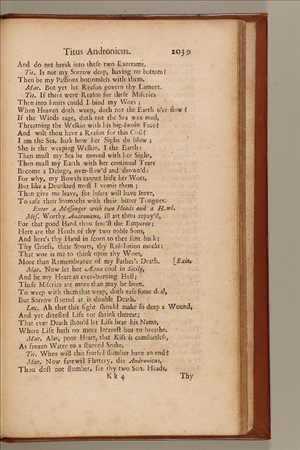 Titus Andronicus. 2039
And do not break into these two Extreams.
Tit. Is not my Sorrow deep, having no bottom?
Then be my Passions bottomless with them.
Mar. But yet let Reason govern thy Lament.
Tit. If there were Reason for these Miseries
Then into limits could I bind my Woes;
When Heaven doth weep, doth not the Earth o'er-flow?
If the Winds rage, doth not the Sea wax mad,
Threatning the Welkin with his big-swoln Face?
And wilt thou have a Reason for this Coil?
I am the Sea, hark how her Sighs do blow;
She is the weeping Welkin, I the Earth:
Then must my Sea be moved with her Sighs,
Then must my Earth with her continual Tears
Become a Deluge, over-flow'd and drown'd:
For why, my Bowels cannot hide her Woes,
But like a Drunkard must I vomit them;
Then give me leave, for losers will have leave,
To ease their Stomachs with their bitter Tongues.
Enter a Messenger with two Heads and a Hand.
Mes. Worthy Andronicus, ill art thou repay'd,
For that good Hand thou sent'st the Emperor;
Here are the Heads of thy two noble Sons,
And here's thy Hand in scorn to thee sent back;
Thy Griefs, their Sports, thy Resolution mockt:
That woe is me to think upon thy Woes,
More than Remembrance of my Father's Death. [Exit.
Mar. Now let hot Ætna cool in Sicily,
And be my Heart an ever-burning Hell;
These Miseries are more than may be born.
To weep with them that weep, doth ease some deal,
But Sorrow flouted at is double Death.
Luc. Ah that this sight should make so deep a Wound,
And yet detested Life not shrink thereat;
That ever Death should let Life bear his Name,
Where Life hath no more Interest but to breathe.
Mar. Alas, poor Heart, that Kiss is comfortless,
As frozen Water to a starved Snake.
Tit. When will this fearful slumber have an end?
Mar. Now farewel Flattery, die Andronicus,
Thou dost not slumber, see thy two Sons Heads,
K k 4 Thy